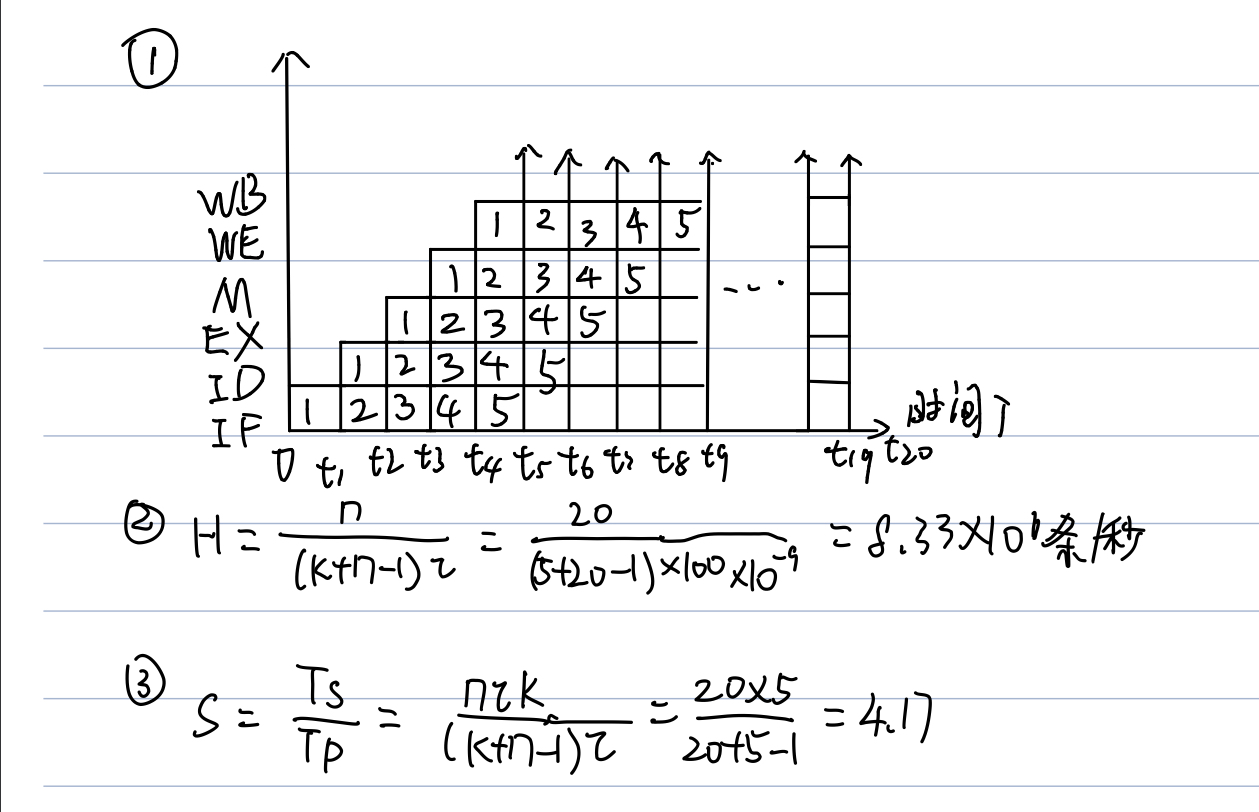 ①
WB 1 2 3 4 5
WE
M 1 2 3 4 5
EX 1 2 3 4 5
ID 1 2 3 4 5
IF 1 2 3 4 5 ... 时间T
0 t1 t2 t3 t4 t5 t6 t7 t8 t9 t19 t20
② H = n/((k+n-1)τ) = 20/((5+20-1)×100×10^-9) = 8.33×10^6条/秒
③ S = Ts/Tp = nτk/((k+n-1)τ) = 20×5/(20+5-1) = 4.17